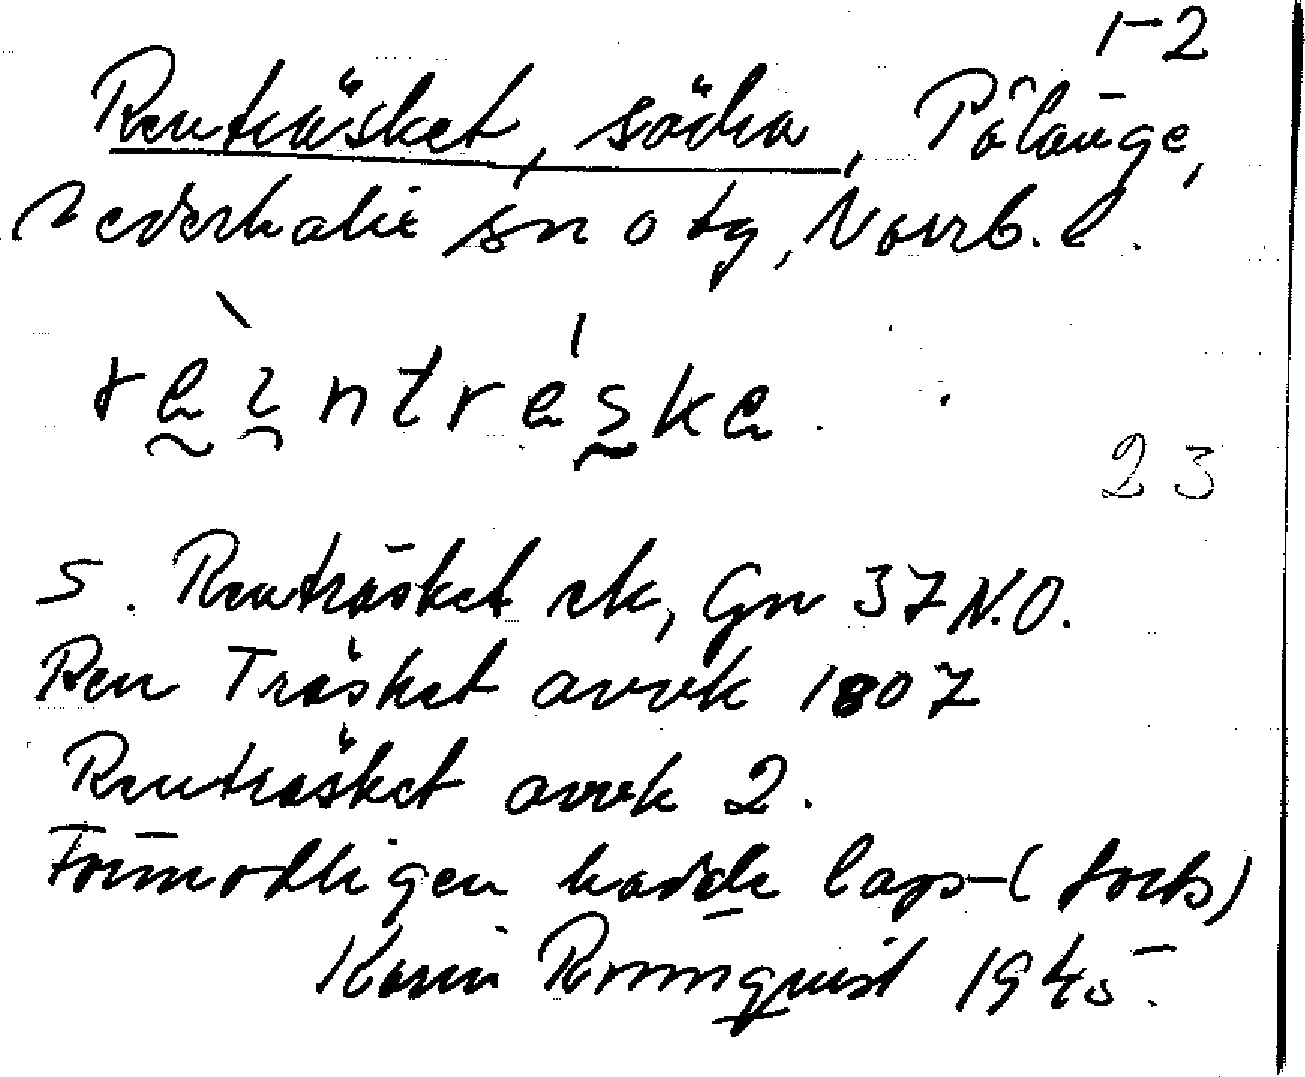 1-2
Renträsket, södra, Pålänge,
Nederkalix sn o tg, Norrb. l.
re̯i̯ntreske
23
S. Renträsket ek, Gn 37 N.O.
Ren Träsket avvk 1807
Renträsket avvk 2.
Förmodligen hade laps-(forts)
Karin Rönnquist 1945.